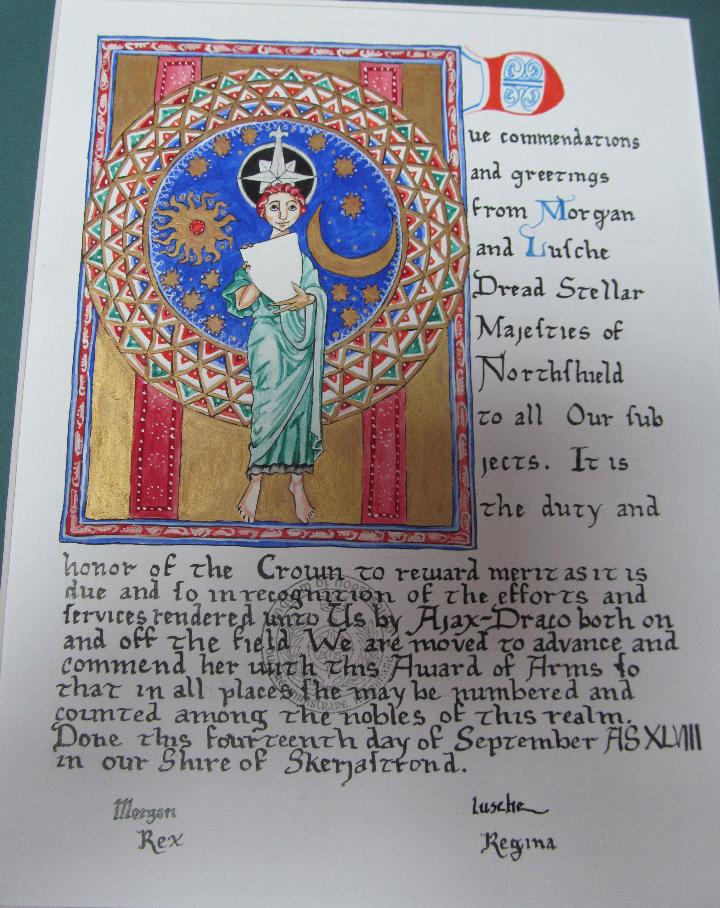 Due commendations
and greetings
from Morgan
and Luſche
Dread Stellar
Majeſties of
Northſhield
to all Our ſub
jects. It is
the duty and
honor of the Crown to reward merit as it is
due and ſo in recognition of the efforts and
ſervices rendered unto Us by Ajax-Draco both on
and off the field We are moved to advance and
commend her with this Award of Arms ſo
that in all places ſhe may be numbered and
counted among the nobles of this realm.
Done this fourteenth day of September AS XLVIII
in our Shire of Skerjaſtrond.
Morgan
Rex
Luſche
Regina